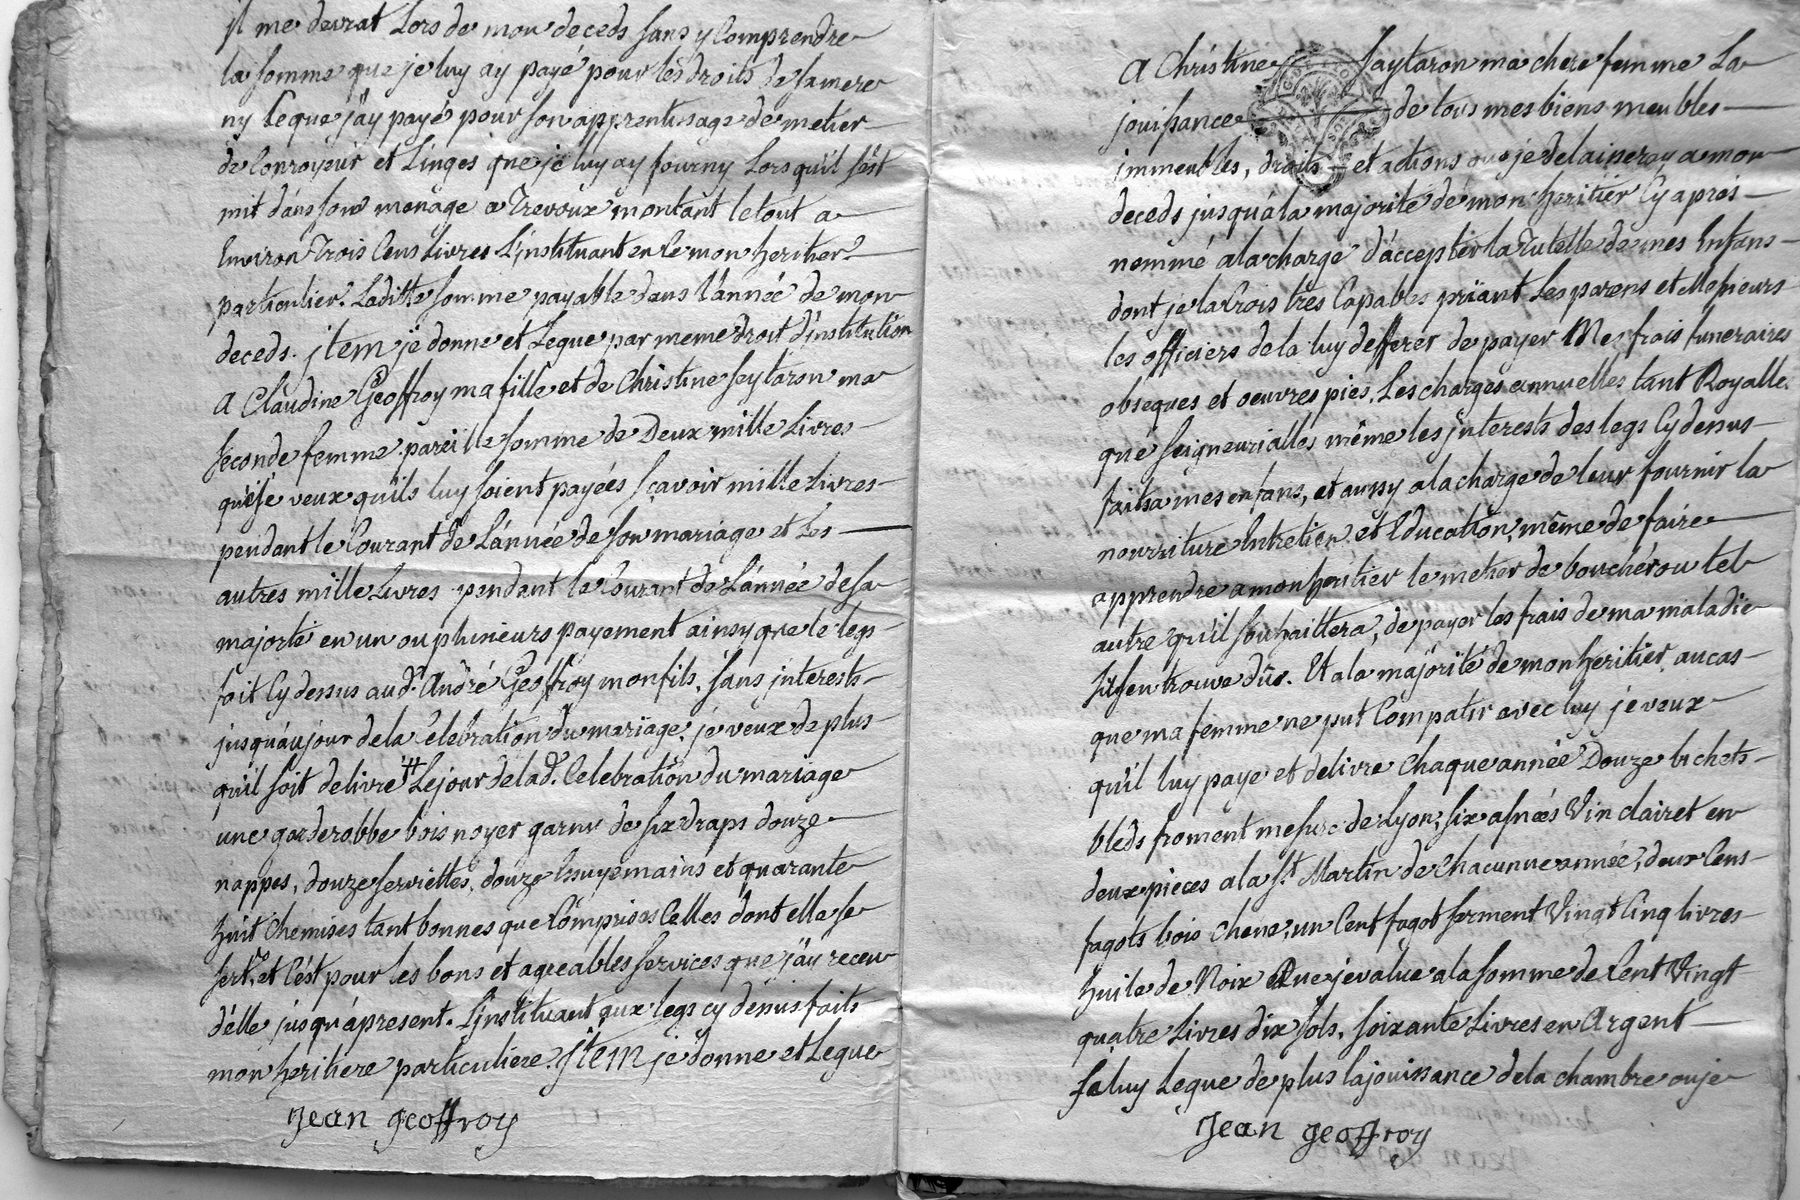 il me devrat Lors de mon deceds sans y Comprendre
la somme que je luy ay payé pour les droits de sa mere
ny Ceque j'ay payé pour son apprentissage de metier
de Conroyeur et Linges que je luy ay fourny Lorsqu'il s'est
mit dans son menage a Trevoux montant le tout a
Environ Trois Cens Livres L'instituant en Ce mon heritier
particulier. Laditte somme payable dans l'année de mon
deceds. jtem je donne et Legue par meme droit d'institution
A Claudine Geoffroy ma fille et de Christine Seytaron ma
seconde femme pareille somme de Deux mille Livres
que je veux qu'ils luy soient payées sçavoir mille Livres
pendant le Courant de L'année de son mariage et Les
autres mille Livres pendent le Courant de L'année de sa
majorté en un ou plusieurs payement ainsy que le legs
fait Cy dessus aud. André Geoffroy mon fils, sans jnterests
jusqu'au jour de la Celebration du mariage, je veux de plus
qu'il soit delivré # Le jour de lad. Celebration du mariage
une garderobbe bois noyer garny de six draps douze
nappes, douze serviettes, douze Essuyemains et quarante
huit Chemises tant bonnes que Comprises Celles dont elle se
sert, et C'est pour les bons et agreables services que j'ay receu
d'elle jusqu'apresent. L'jnstituant aux legs cy dessus faits
mon heritiere particuliere. jtem je donne et Legue
Jean geoffroy
A Christine Saytaron ma chere femme La
jouissance de tous mes biens meubles
immeubles, droits et actions que je delaisseray a mon
deceds jusqu'a la majorité de mon heritier Cy apres
nommé a la charge d'accepter la Tutelle de mes Enfans
dont je la Crois tres Capables priant Les parens et Messieurs
les officiers de la luy defferer de payer Mes frais funeraires
obseques et oeuvres pies, Les charges annuelles tant Royalles
que seigneurialles même les jnterests des legs Cy dessus
faits a mes enfans, et aussy a la charge de leur fournir la
nourriture Entretien et Education, même de faire
apprendre a mon heritier le metier de boucher ou tel
autre qu'il souhaittera, de payer les frais de ma maladie
s'il s'en trouve dûs. Et a la majorité de mon heritier au cas
que ma femme ne put Compatir avec luy je veux
qu'il luy paye et delivre chaque année Douze bichets
bleds froment mesure de Lyon, six asnées Vin clairet en
deux pieces a la St. Martin de Chacunne année, deux Cens
fagots bois chene, un Cent fagot serment Vingt Cinq livres
huile de Noix Que j'evalue a la somme de Cent Vingt
quatre Livres dix sols, soixante Livres en Argent
Je luy Legue de plus la jouissance de la chambre ou je
Jean geoffroy